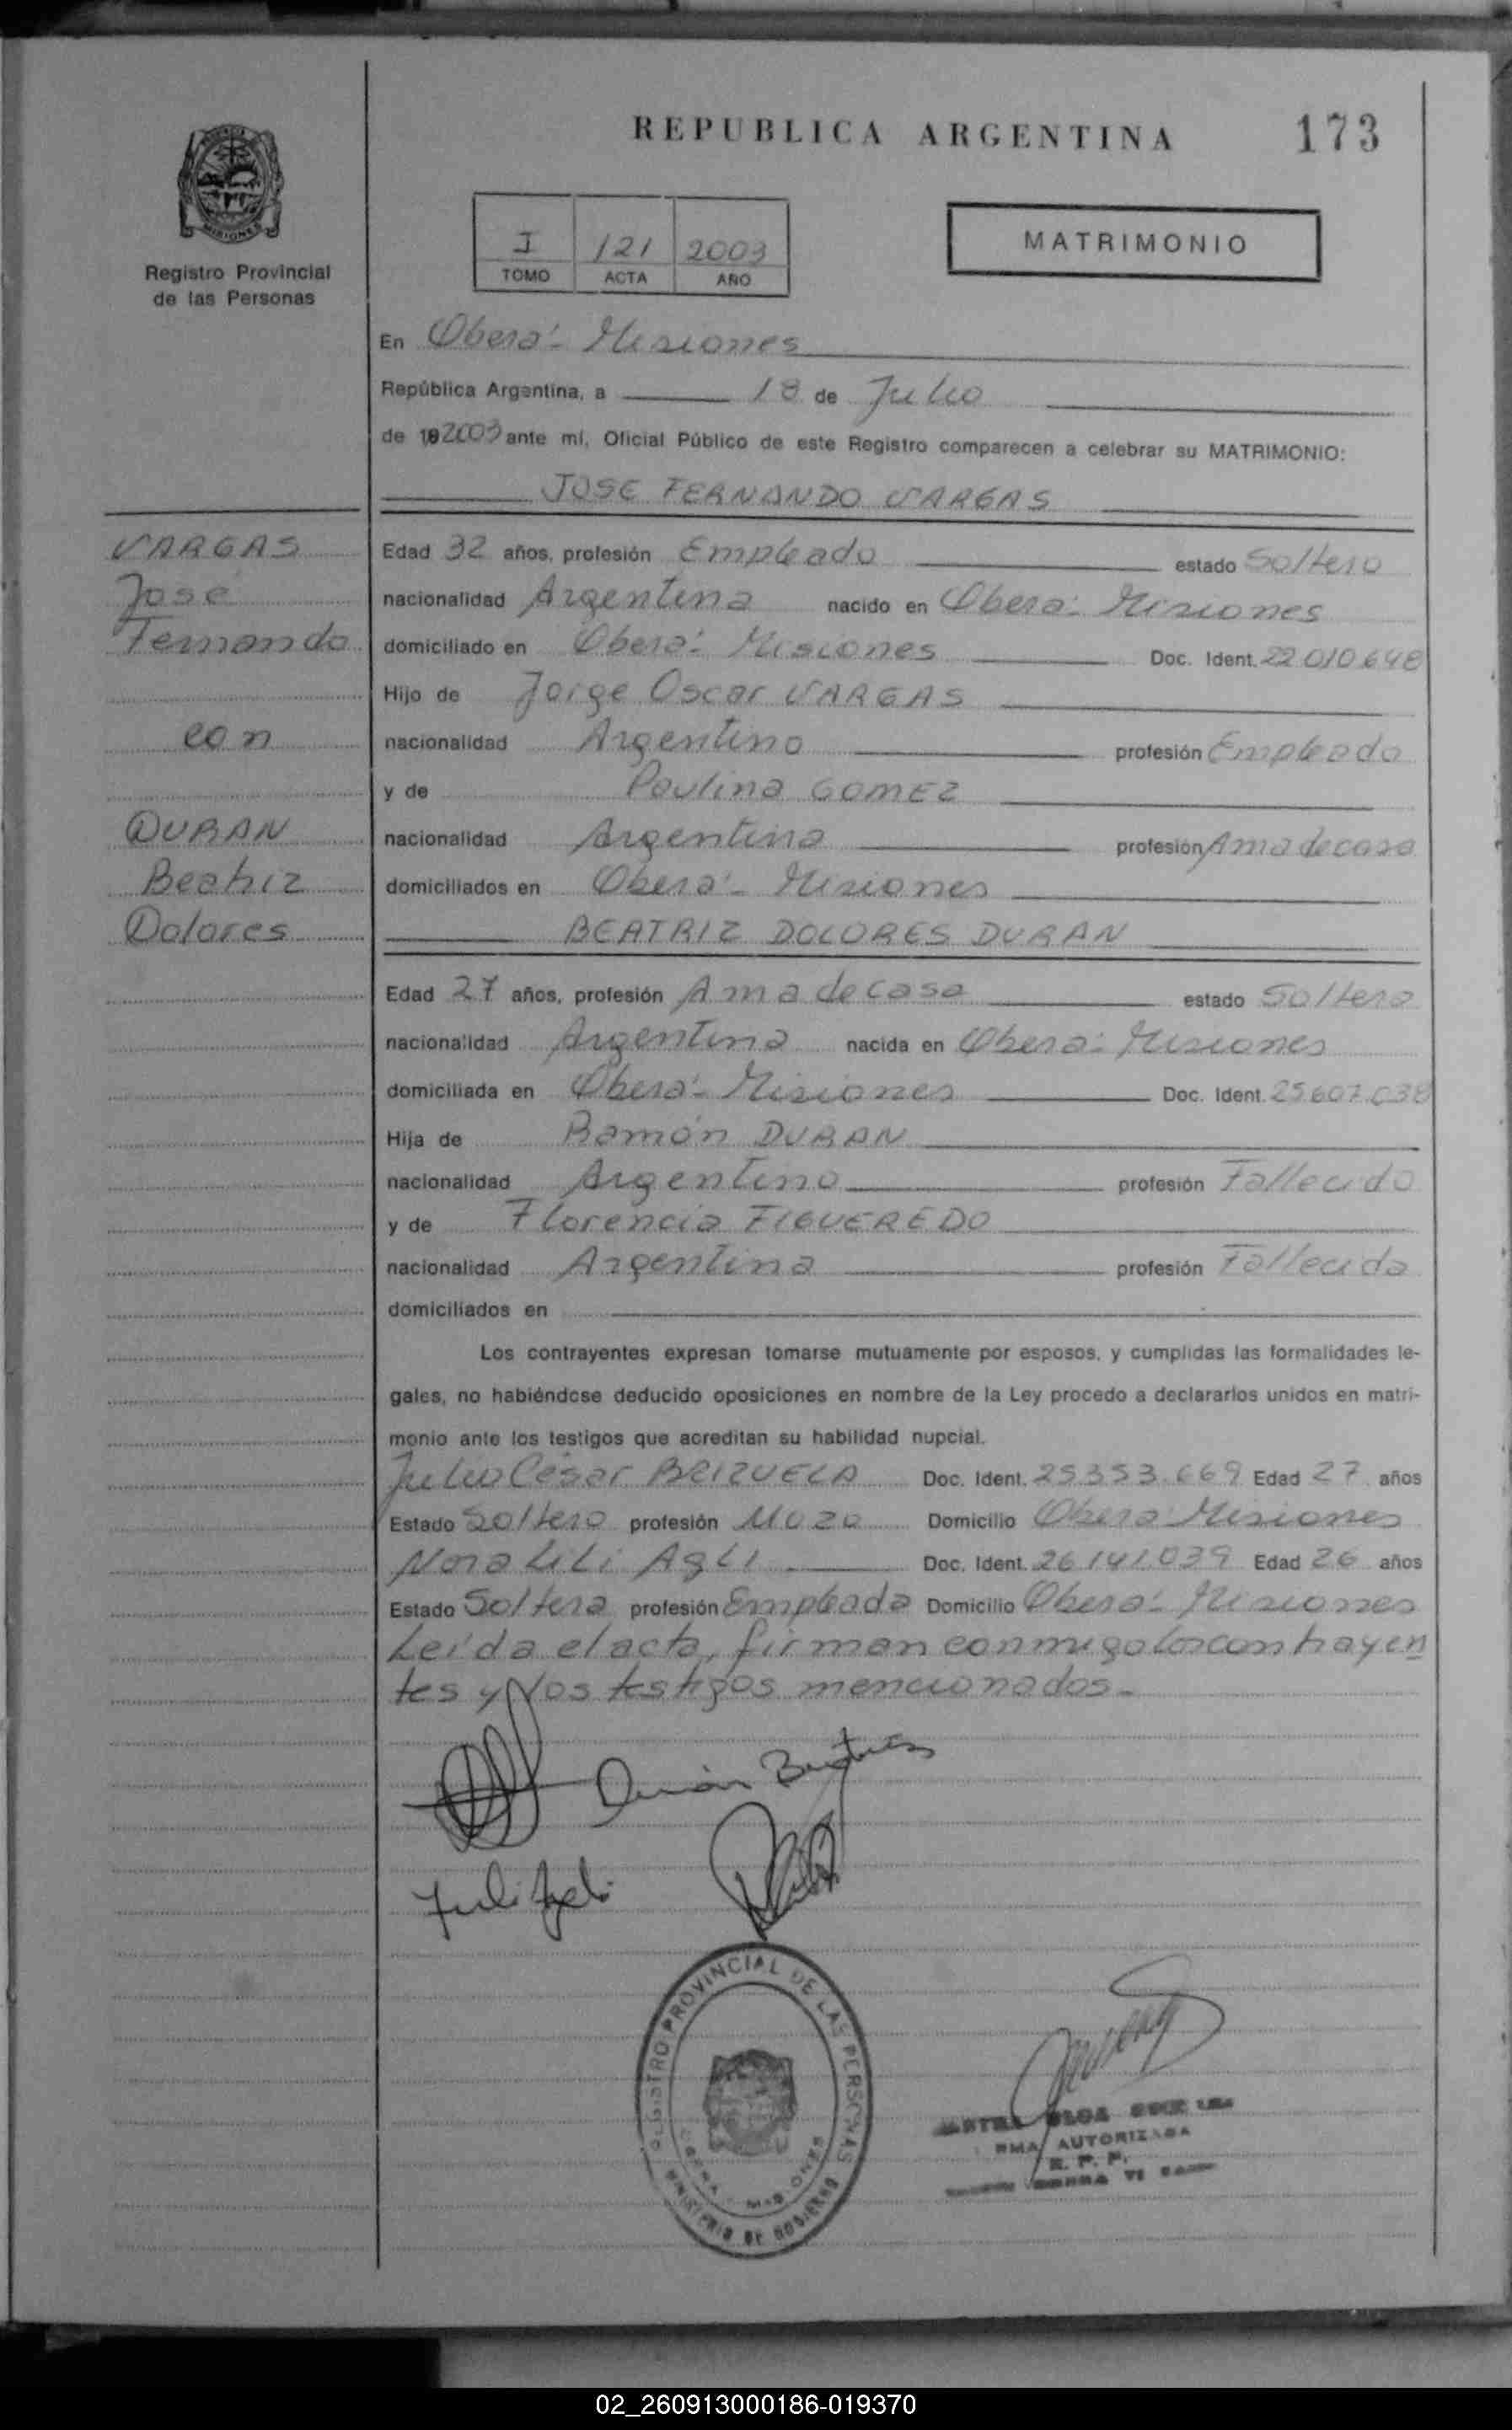 REPUBLICA ARGENTINA
173
MISIONES
Registro Provincial
de las Personas
I 121 2003
TOMO ACTA AÑO
MATRIMONIO
En Oberá - Misiones
República Argentina, a 18 de Julio
de 192003 ante mí, Oficial Público de este Registro comparecen a celebrar su MATRIMONIO:
JOSE FERNANDO VARGAS
VARGAS
José
Fernando
con
DURAN
Beatriz
Dolores
Edad 32 años, profesión Empleado estado Soltero
nacionalidad Argentina nacido en Oberá - Misiones
domiciliado en Oberá - Misiones Doc. Ident. 22.010.648
Hijo de Jorge Oscar VARGAS
nacionalidad Argentino profesión Empleado
y de Paulina GOMEZ
nacionalidad Argentina profesión Ama de casa
domiciliados en Oberá - Misiones
BEATRIZ DOLORES DURAN
Edad 27 años, profesión Ama de casa estado Soltera
nacionalidad Argentina nacida en Oberá - Misiones
domiciliada en Oberá - Misiones Doc. Ident. 25.607.038
Hija de Ramón DURAN
nacionalidad Argentino profesión Fallecido
y de Florencia FIGUEREDO
nacionalidad Argentina profesión Fallecida
domiciliados en
Los contrayentes expresan tomarse mutuamente por esposos, y cumplidas las formalidades le-
gales, no habiéndose deducido oposiciones en nombre de la Ley procedo a declararlos unidos en matri-
monio ante los testigos que acreditan su habilidad nupcial.
Julio César BRIZUELA Doc. Ident. 25.353.669 Edad 27 años
Estado Soltero profesión Mozo Domicilio Oberá Misiones
Nora Lili Agli Doc. Ident. 26.141.039 Edad 26 años
Estado Soltera profesión Empleada Domicilio Oberá - Misiones
Leída el acta, firman conmigo los contrayen
tes y los testigos mencionados.-
Durán Beatriz
REGISTRO PROVINCIAL DE LAS PERSONAS
OBERA - MISIONES
MINISTERIO DE GOBIERNO
OLGA
AUTORIZADA
R. P. P.
02_260913000186-019370